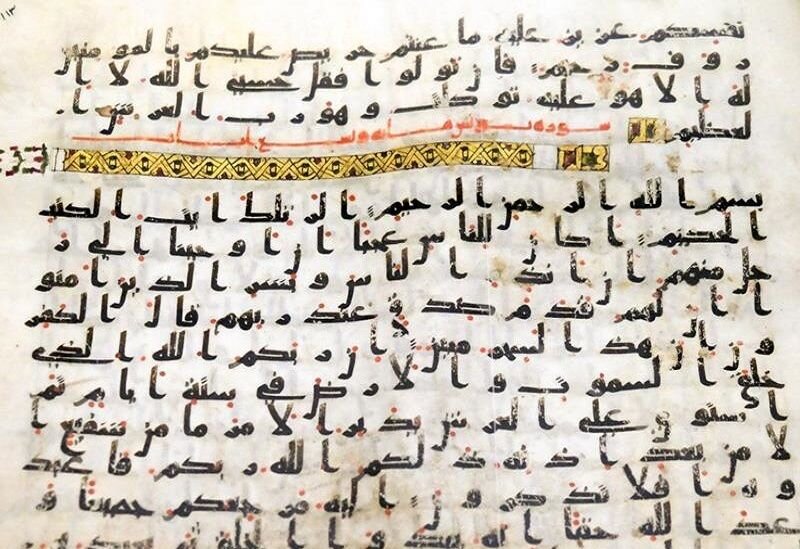 ١١٣
نفسكم عزيز عليه ما عنتم حريص عليكم بالمومنين
روف رحيم فان تولوا فقل حسبي الله لا ا
له الا هو عليه توكلت وهو رب العرش ا
لعظيم
سورة يونس مايه وتسع ايات
بسم الله الرحمن الرحيم الر تلك ايت الكتب
الحكيم اكان للناس عجبا ان اوحينا الى ر
جل منهم ان انذر الناس وبشر الذين امنو
ا ان لهم قدم صدق عند ربهم قال الكفر
ون ان هذا لسحر مبين ان ربكم الله الذي
خلق السموت والارض في ستة ايام ثم
استوى على العرش يدبر الامر ما من شفيع ا
لا من بعد اذنه ذلكم الله ربكم فاعبد
وه افلا تذكرون اليه مرجعكم جميعا و
عد الله حقا انه يبدوا الخلق ثم يعيد